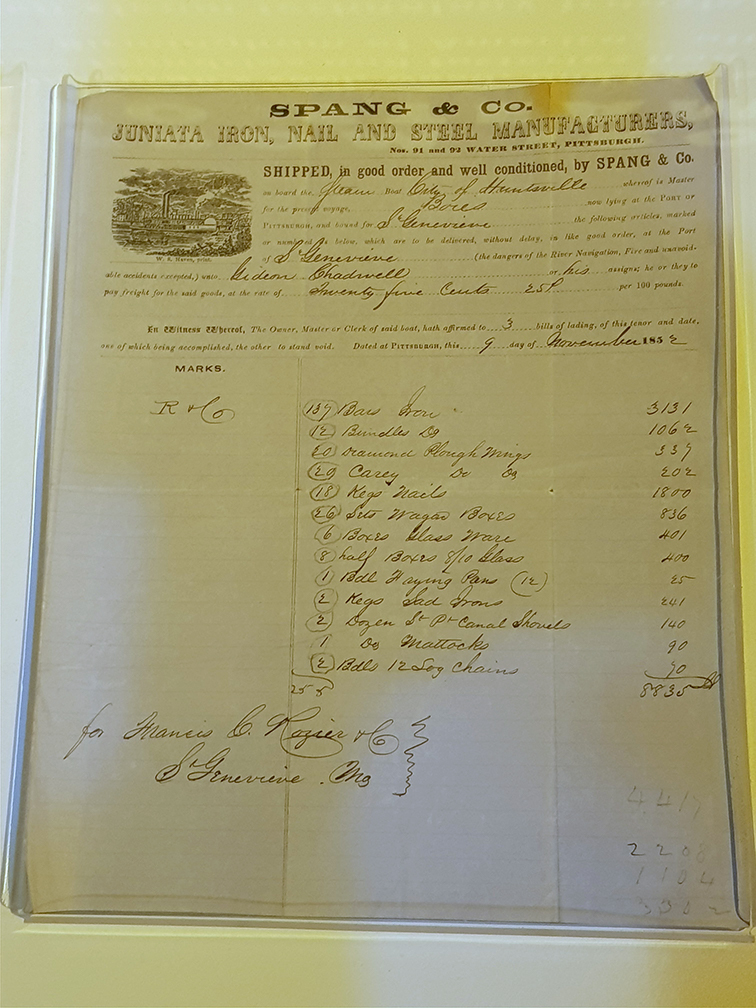 SPANG & CO.
JUNIATA IRON, NAIL AND STEEL MANUFACTURERS,
Nos. 91 and 92 WATER STREET, PITTSBURGH.
SHIPPED, in good order and well conditioned, by SPANG & Co.
on board the Steam Boat City of Huntsville whereof is Master
for the present voyage, Boies now lying at the PORT or
PITTSBURGH, and bound for St Genevieve the following articles, marked
or numbered as below, which are to be delivered, without delay, in like good order, at the Port
of St Genevieve (the dangers of the River Navigation, Fire and unavoid-
W. S. Haven, print.
able accidents excepted,) unto Gideon Chadwell or his assigns; he or they to
pay freight for the said goods, at the rate of Twenty five Cents 25¢ per 100 pounds.
In Witness Whereof, The Owner, Master or Clerk of said boat, hath affirmed to 3 bills of lading, of this tenor and date,
one of which being accomplished, the other to stand void. Dated at PITTSBURGH, this 9 day of November 1852
MARKS.
R & Co 137 Bars Iron 3131
12 Bundles Do 1062
20 Diamond Plough Wings 337
20 Carey Do Do 202
18 Kegs Nails 1800
26 Sets Wagon Boxes 836
6 Boxes Glass Ware 401
8 half Boxes 8/10 Glass 400
1 Bdl Frying Pans (12) 25
2 Kegs Sad Irons 241
2 Dozen St Pt Canal Shovels 140
1 Do Mattocks 90
2 Bdls 12 Log Chains 70
255 8835
for Francis C. Rozier & Co
St Genevieve . Mo
441
220
110